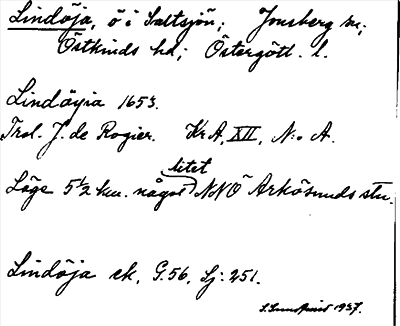 Lindöja, ö i Saltsjön; Jonsberg sn;
Östkinds hd; Östergötl. l.
Lindöyia 1653.
Trol. J. de Rogier. KrA, XII, N:o A.
litet
Läge 5 1/2 km. något NNÖ Arkösunds stn.
Lindöja ek, G.56, Sj: 251.
S. Sundqvist 1937.